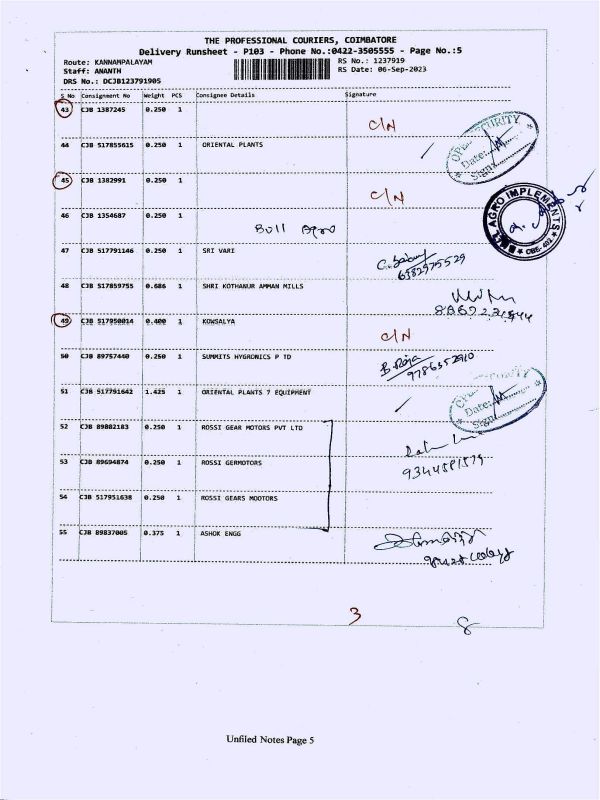 THE PROFESSIONAL COURIERS, COIMBATORE
Delivery Runsheet - P103 - Phone No.:0422-3505555 - Page No.:5
Route: KANNAMPALAYAM RS No.: 1237919
Staff: ANANTH RS Date: 06-Sep-2023
DRS No.: DCJB123791905
S No Consignment No Weight PCS Consignee Details Signature
43 CJB 1387245 0.250 1 C/N
44 CJB 517855615 0.250 1 ORIENTAL PLANTS
SECURITY
Date:
Sign:
45 CJB 1382991 0.250 1 C/N
AGRO IMPLEMENTS
46 CJB 1354687 0.250 1 Bull Agro
47 CJB 517791146 0.250 1 SRI VARI
6382975529
48 CJB 517859755 0.686 1 SHRI KOTHANUR AMMAN MILLS
49 CJB 517950014 0.400 1 KOWSALYA C/N
50 CJB 89757440 0.250 1 SUMMITS HYGRONICS P TD B. Raja
9786352910
51 CJB 517791642 1.425 1 ORIENTAL PLANTS 7 EQUIPMENT
SECURITY
Date:
Sign:
52 CJB 89882183 0.250 1 ROSSI GEAR MOTORS PVT LTD
53 CJB 89694874 0.250 1 ROSSI GERMOTORS
54 CJB 517951638 0.250 1 ROSSI GEARS MOOTORS
55 CJB 89837005 0.375 1 ASHOK ENGG
3 8
Unfiled Notes Page 5